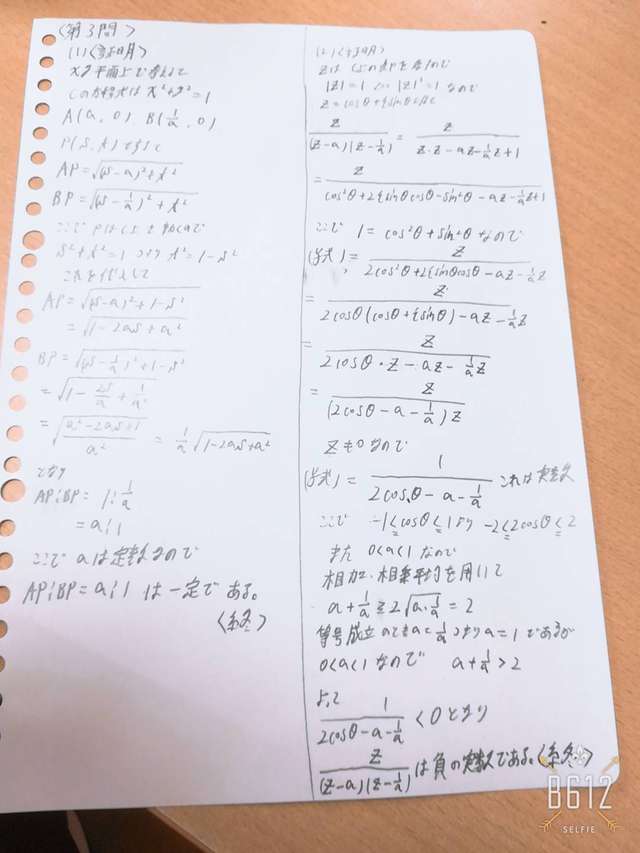 〈第3問〉
(1)〈証明〉
xy平面上で考えて
Cの方程式は x²+y²=1
A(a, 0), B(1/a, 0)
P(s, t) とすると
AP=√((s-a)²+t²)
BP=√((s-1/a)²+t²)
ここで PはC上を動くので
s²+t²=1 つまり t²=1-s²
これを代入して
AP=√((s-a)²+1-s²)
=√(1-2as+a²)
BP=√((s-1/a)²+1-s²)
=√(1-2s/a+1/a²)
=√((a²-2as+1)/a²) = 1/a √(1-2as+a²)
となり
AP:BP= 1:1/a
= a:1
ここで aは定数なので
AP:BP=a:1 は一定である。
〈終〉
(2)〈証明〉
zはC上の点を表すので
|z|=1 |z|²=1 なので
z=cosθ+isinθとおくと
z/((z-a)(z-1/a)) = z/(z·z-az-1/a z+1)
= z/(cos²θ+2isinθcosθ-sin²θ-az-1/a z+1)
ここで 1=cos²θ+sin²θ なので
(与式)= z/(2cos²θ+2isinθcosθ-az-1/a z)
= z/(2cosθ(cosθ+isinθ)-az-1/a z)
= z/(2cosθ・z-az-1/a z)
= z/((2cosθ-a-1/a)z)
z≠0なので
(与式)= 1/(2cosθ-a-1/a) これは実数
ここで -1≦cosθ≦1より -2≦2cosθ≦2
また 0<a<1なので
相加・相乗平均を用いて
a+1/a≧2√(a・1/a)=2
等号成立のときa=1/a つまりa=1であるが
0<a<1なので a+1/a>2
よって
1/(2cosθ-a-1/a) <0となり
z/((z-a)(z-1/a)) は負の実数である。〈終〉
B612
SELFIE